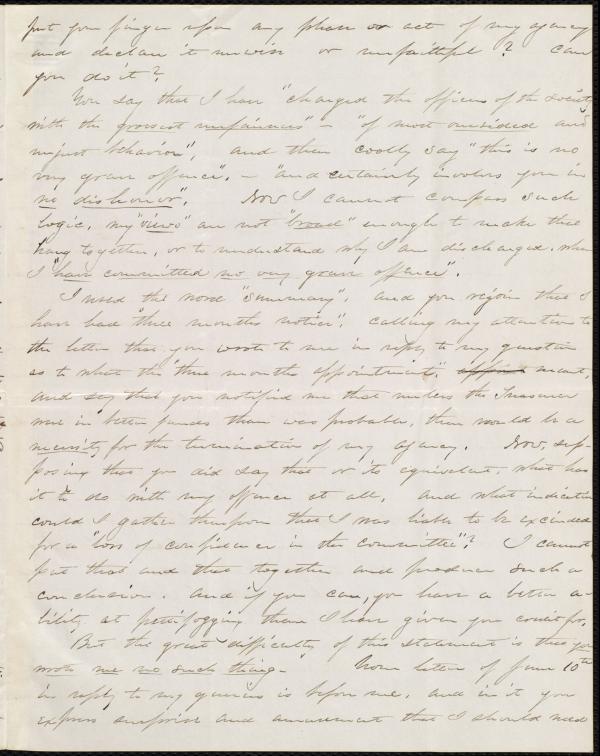 put your finger upon any phase or act of my agency
and declare it unwise or unfaithful? Can
you do it?
You say that I have "charged the officers of the society
with the grossest unfairness" – "of most onesided and
unjust behavior", and then coolly say "this is no
very grave offence", – "and certainly involves you in
no dishonor". Now I cannot compass such
logic, my "views" are not "broad" enough to make this
hang together, or to understand why I am discharged, when
I "have committed no very grave offence".
I used the word "summary", and you rejoin that I
have had "three months notice", calling my attention to
the letter that you wrote to me in reply to my question
as to what the "three months appointment" meant,
and say that you notified me that unless the Treasurer
were in better funds than was probable, there would be a
necessity for the termination of my agency. Now, sup-
posing that you did say that or its equivalent, what has
it to do with my offence at all, and what indication
could I gather therefrom that I was liable to be exscinded
for a "loss of confidence in the committee"? I cannot
put that and that together and produce such a
conclusion. And if you can, you have a better a-
bility at pettifogging than I have given you credit for.
But the great difficulty of this statement is that you
wrote me no such thing. Your letter of June 10th
in reply to my queries is before me, and in it you
express surprise and amusement that I should need